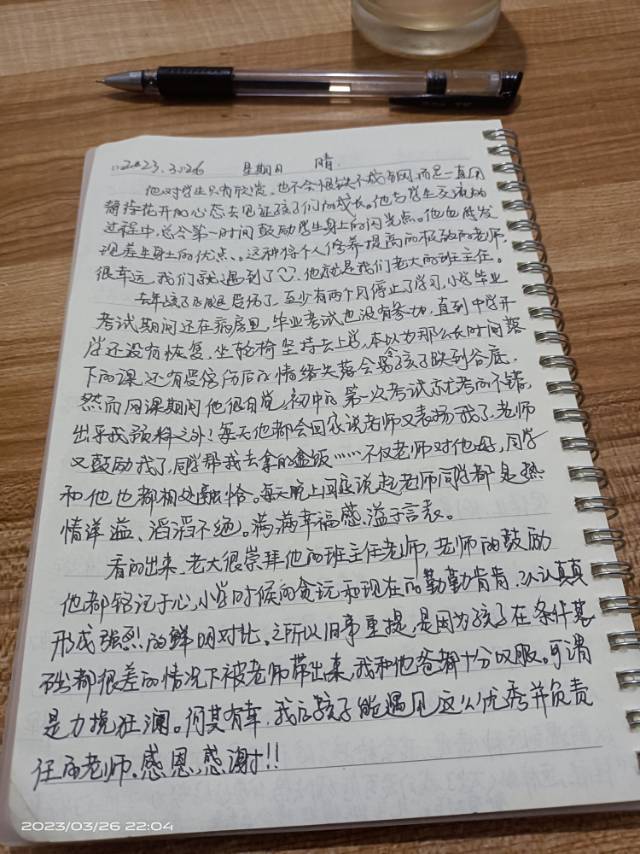 2023.3.26 星期日 晴.
他对学生只有欣赏，也不会恨铁不成钢，而是一直用
静待花开的心态去见证孩子们的成长。他与学生交流的
过程中，总会第一时间鼓励学生身上的闪光点。他也启发
现差生身上的优点、这种将个人修养提高的极致的老师，
很幸运，我们就遇到了，他就是我们老大的班主任。
去年孩子因腿受伤了，至少有两个月停止了学习，小学毕业
考试期间还在病房里，毕业考试也没有参加，直到中学开
学还没有恢复，坐轮椅坚持去上学，本以为那么长时间落
下的课，还有受伤后的情绪失落会导孩子跌到谷底.
然而网课期间他很自觉，初中的第一次考试就考的不错，
出乎我预料之外！每天他都会回家说老师又表扬我了，老师
又鼓励我了，同学帮我去拿的盒饭……不仅老师对他好，同学
和他也都相处融恰。每天晚上回家说起老师同学都是热
情洋溢、滔滔不绝。满满幸福感，溢于言表。
看的出来，老大很崇拜他的班主任老师，老师的鼓励
他都铭记于心，小学时候的贪玩和现在的勤勤肯肯，认认真真
形成强烈的鲜明对比。之所以旧事重提，是因为孩子在条件基
础都很差的情况下被老师带出来，我和他爸都十分叹服。可谓
是力挽狂澜。何其有幸，我应孩子能遇见这么优秀并负责
任的老师。感恩，感谢！！
2023/03/26 22:04